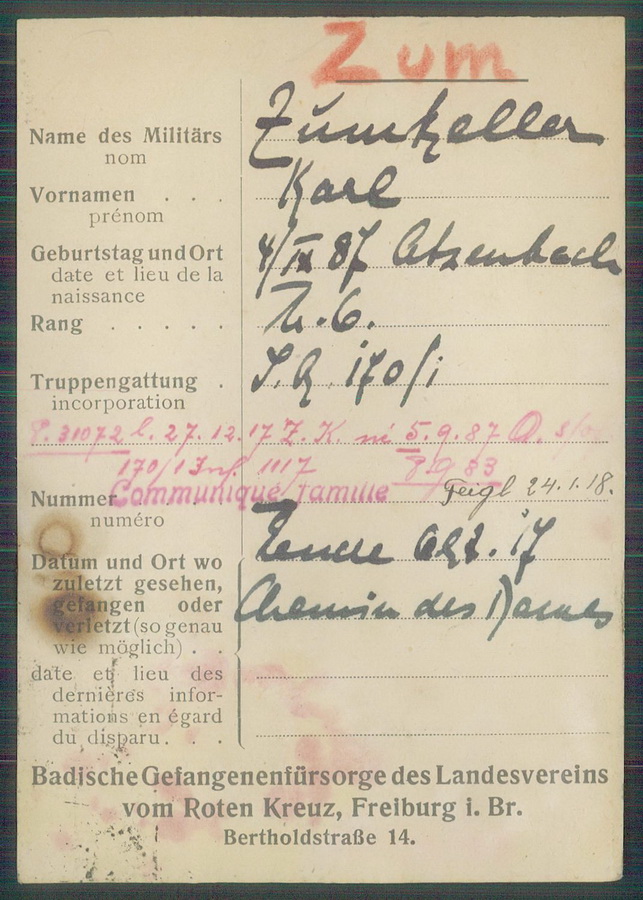 Zum
Name des Militärs Zumkeller
nom
Vornamen . . . Karl
prénom
Geburtstag und Ort 4/IX 87 Atzenbach
date et lieu de la
naissance
Rang . . . . . U.O.
Truppengattung . J.R. 170/1
incorporation
P. 31072 l. 27.12.17 Z. K. né 5.9.87
170/1 Inf. 1117 8.9.83
Communiqué famille
Nummer Feigl 24.1.18.
numéro
Datum und Ort wo 17
zuletzt gesehen, Chemin des Dames
gefangen oder
verletzt (so genau
wie möglich) . .
date et lieu des
dernières infor-
mations en égard
du disparu. . .
Badische Gefangenenfürsorge des Landesvereins
vom Roten Kreuz, Freiburg i. Br.
Bertholdstraße 14.